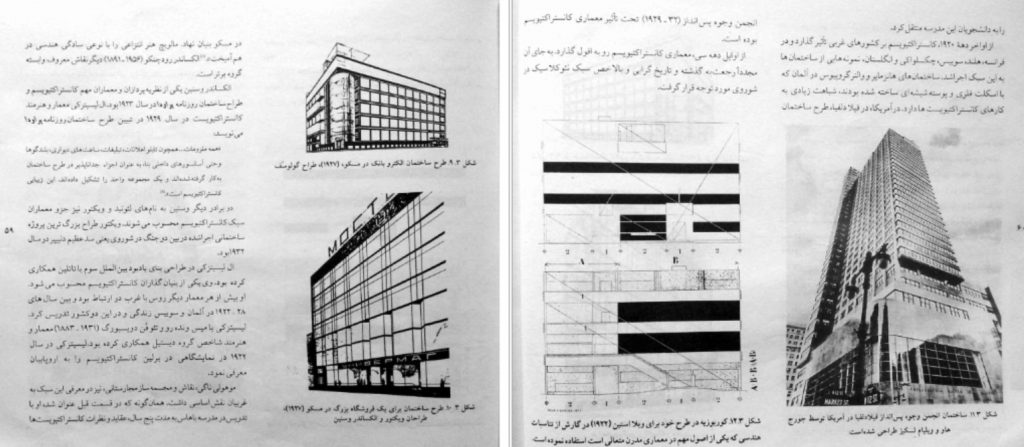 در مسکو بنیان نهاد. مالویچ هنر انتزاعی را با نوعی سادگی هندسی در
هم آمیخت. الکساندر رودچنکو (۱۹۵۶ ـ ۱۸۹۱) دیگر نقاش معروف وابسته
گروه برتر است.
الکساندر وسنین یکی از نظریه پردازان و معماران مهم کانستراکتیویسم و
طراح ساختمان روزنامه پراودا در سال ۱۹۲۳ بود. ال لیستزکی معمار و هنرمند
کانستراکتیویست در سال ۱۹۲۹ در تبیین طرح ساختمان روزنامه پراودا
می‌نویسد:
«همه ملزومات... همچون تابلو اعلانات، تبلیغات، ساعت‌های دیواری، بلندگوها
و حتی آسانسورهای داخلی بنا، به عنوان اجزاء جداناپذیر در طرح ساختمان
به‌کار گرفته شده‌اند و یک مجموعه واحد را تشکیل داده‌اند. این زیبایی
کانستراکتیویسم است.»
دو برادر دیگر وسنین به نام‌های لئونید و ویکتور نیز جزو معماران
سبک کانستراکتیویسم محسوب می شوند. ویکتور طراح بزرگ ترین پروژه
ساختمانی اجرا شده در بین دو جنگ در شوروی یعنی سد عظیم دنیپر در سال
۱۹۳۲ بود.
ال لیستزکی در طراحی بنای یادبود بین‌الملل سوم با تاتلین همکاری
کرده بود. وی یکی از بنیان‌گذاران کانستراکتیویسم محسوب می شود.
او بیش از هر معمار دیگر روس با غرب در ارتباط بود و بین سال های
۲۸ ـ ۱۹۲۲ در آلمان و سوییس زندگی و در این دو کشور تدریس کرد.
لیستزکی با میس ونده رو و تئو فن دویسبورگ (۱۹۳۱ ـ ۱۸۸۳) معمار و
هنرمند شاخص گروه دیستیل همکاری کرده بود. لیستزکی در سال
۱۹۲۲ در نمایشگاهی در برلین کانستراکتیویسم را به اروپاییان
معرفی نمود.
موهولی ناگی، نقاش و مجسمه ساز مجارستانی، نیز در معرفی این سبک به
غربیان نقش اساسی داشت. همان‌گونه که در قسمت قبل عنوان شده او با
تدریس در مدرسه باهاس به مدت پنج سال، عقاید و نظرات کانستراکتیویست‌ها
۵۹
شکل ۳.۹ طرح ساختمان الکترو بانک در مسکو، (۱۹۲۷)، طراح گولوسف
МОСТ
شکل ۳.۱۰ طرح ساختمان برای یک فروشگاه بزرگ در مسکو (۱۹۲۷)،
طراحان ویکتور و الکساندر وسنین
را به دانشجویان این مدرسه منتقل کرد.
از اواخر دهه ۱۹۲۰، کانستراکتیویسم بر کشورهای غربی تأثیر گذارد و در
فرانسه، هلند، سوییس، چکسلواکی و انگلستان، نمونه‌هایی از ساختمان‌ها
به این سبک اجرا شد. ساختمان‌های هنرمایر و والتر گروپیوس در آلمان که
با اسکلت فلزی و پوسته شیشه‌ای ساخته شده بودند، شباهت زیادی به
کارهای کانستراکتیویست‌ها دارد. در آمریکا، در فیلادلفیا، طرح ساختمان
شکل ۳.۱۱ ساختمان انجمن وجوه پس‌انداز فیلادلفیا در آمریکا توسط جورج
هاو و ویلیام لسکیز طراحی شده است
انجمن وجوه پس انداز (۳۲ ـ ۱۹۲۹) تحت تأثیر معماری کانستراکتیویسم
بوده است.
از اوایل دهه سی، معماری کانستراکتیویسم رو به افول گذارد. به جای آن
مجدداً رجعت به گذشته و تاریخ گرایی و بالاخص سبک نئوکلاسیک در
شوروی مورد توجه قرار گرفت.
A B
شکل ۳.۱۲ کوربوزیه در طرح خود برای ویلا استین (۱۹۲۷) در گارش از تناسبات
هندسی که یکی از اصول مهم در معماری مدرن متعالی است استفاده نموده است